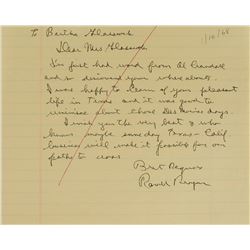 To Bertha
1/10/68
Dear Mrs
I've just had word from Al Crandall
and so discovered your where abouts.
I was happy to learn of your pleasant
life in Texas and it was good to
reminisce about those Des Moines days.
I wish you the very best & who
knows maybe some day Texas - Calif.
business will make it possible for our
paths to cross
Best Regards